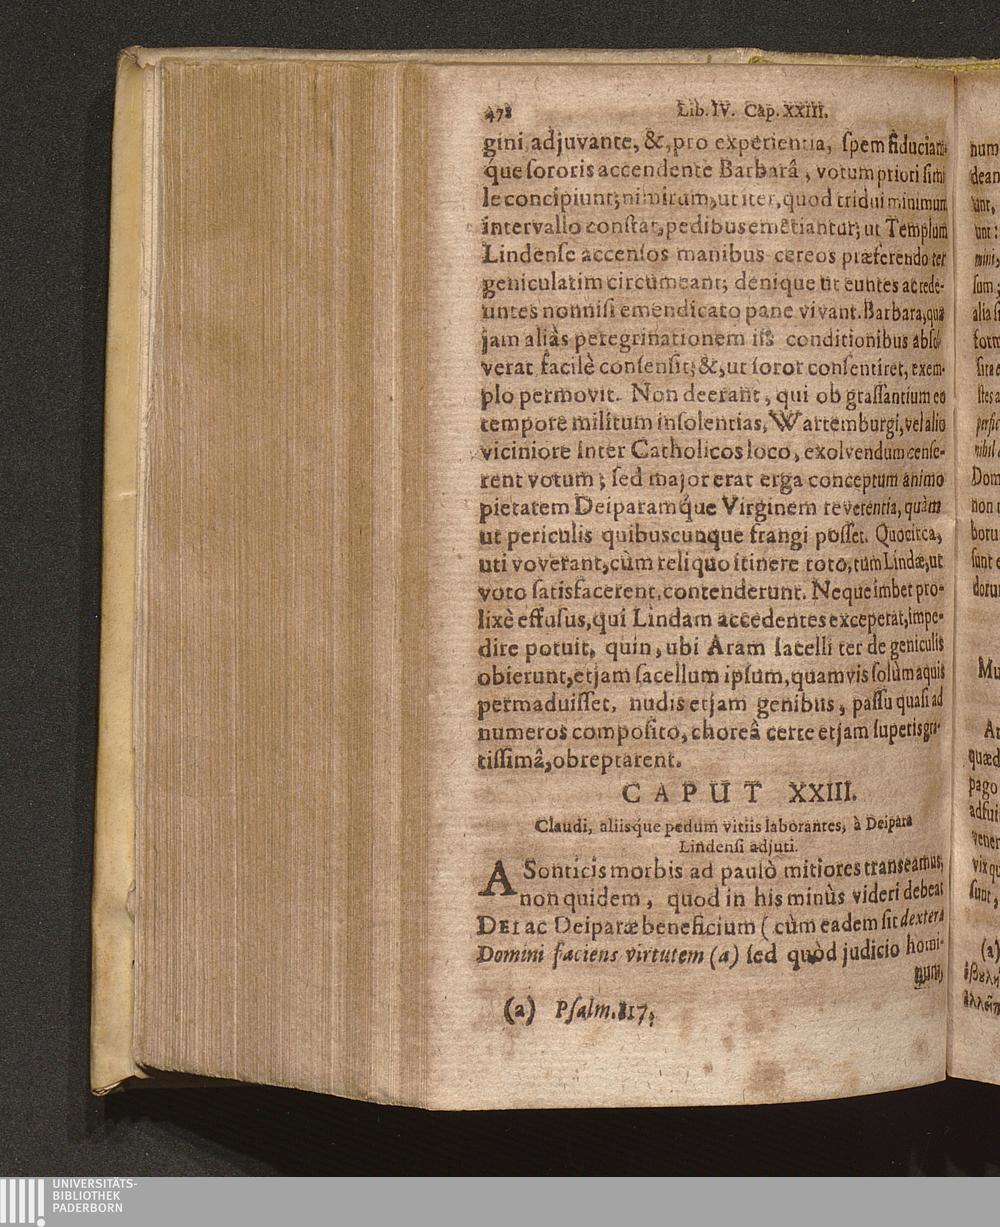 478 Lib. IV. Cap. XXIII.
gini adjuvante, &, pro experientia, ſpem fiduciam-
q́ue ſororis accendente Barbarâ, votum priori ſimi
le concipiunt; nimirum, ut iter, quod tridui minimum
intervallo conſtat, pedibus emetiantur; ut Templum
Lindenſe accenſos manibus cereos præferendo ter
geniculatim circumeant; denique ut euntes ac rede-
untes nonniſi emendicato pane vivant. Barbara, quæ
jam aliàs peregrinationem iis conditionibus abſol
verat facilè conſenſit; &, ut ſoror conſentiret, exem-
plo permovit. Non deerant, qui ob graſſantium eo
tempore militum inſolentias, Wartemburgi, vel alio
viciniore inter Catholicos loco, exolvendum cenſe-
rent votum; ſed major erat erga conceptum animo
pietatem Deiparamq́ue Virginem reverentia, quàm
ut periculis quibuscunque frangi poſſet. Quocirca,
uti voverant, cùm reliquo itinere toto, tum Lindæ, ut
voto ſatisfacerent, contenderunt. Neque imber pro-
lixè effuſus, qui Lindam accedentes exceperat, impe-
dire potuit, quin, ubi Aram ſacelli ter de geniculis
obierunt, etjam ſacellum ipſum, quamvis ſolùm aquis
permaduiſſet, nudis etjam genibus, paſſu quaſi ad
numeros compoſito, choreâ certe etjam ſuperis gra-
tiſſimâ, obreptarent.
CAPUT XXIII.
Claudi, aliisque pedum vitiis laborantes, à Deipara
Lindenſi adjuti.
A Sonticis morbis ad paulò mitiores transeamus,
non quidem, quod in his minùs videri debeat
DEI ac Deiparæ beneficium (cùm eadem ſit dextera
Domini faciens virtutem (a) ſed quòd judicio homi-
num,
(a) Pſalm. 117.
num
dean
unt,
unt:
mini,
ſum;
alia ſ
form
ſita e
ſtes a
perfic
nihil
Dom
non
boru
ſunt e
dorum
Mu
quæd
pago
adfui
vener
vix qu
ſunt,
(a)
UNIVERSITÄTS-
BIBLIOTHEK
PADERBORN